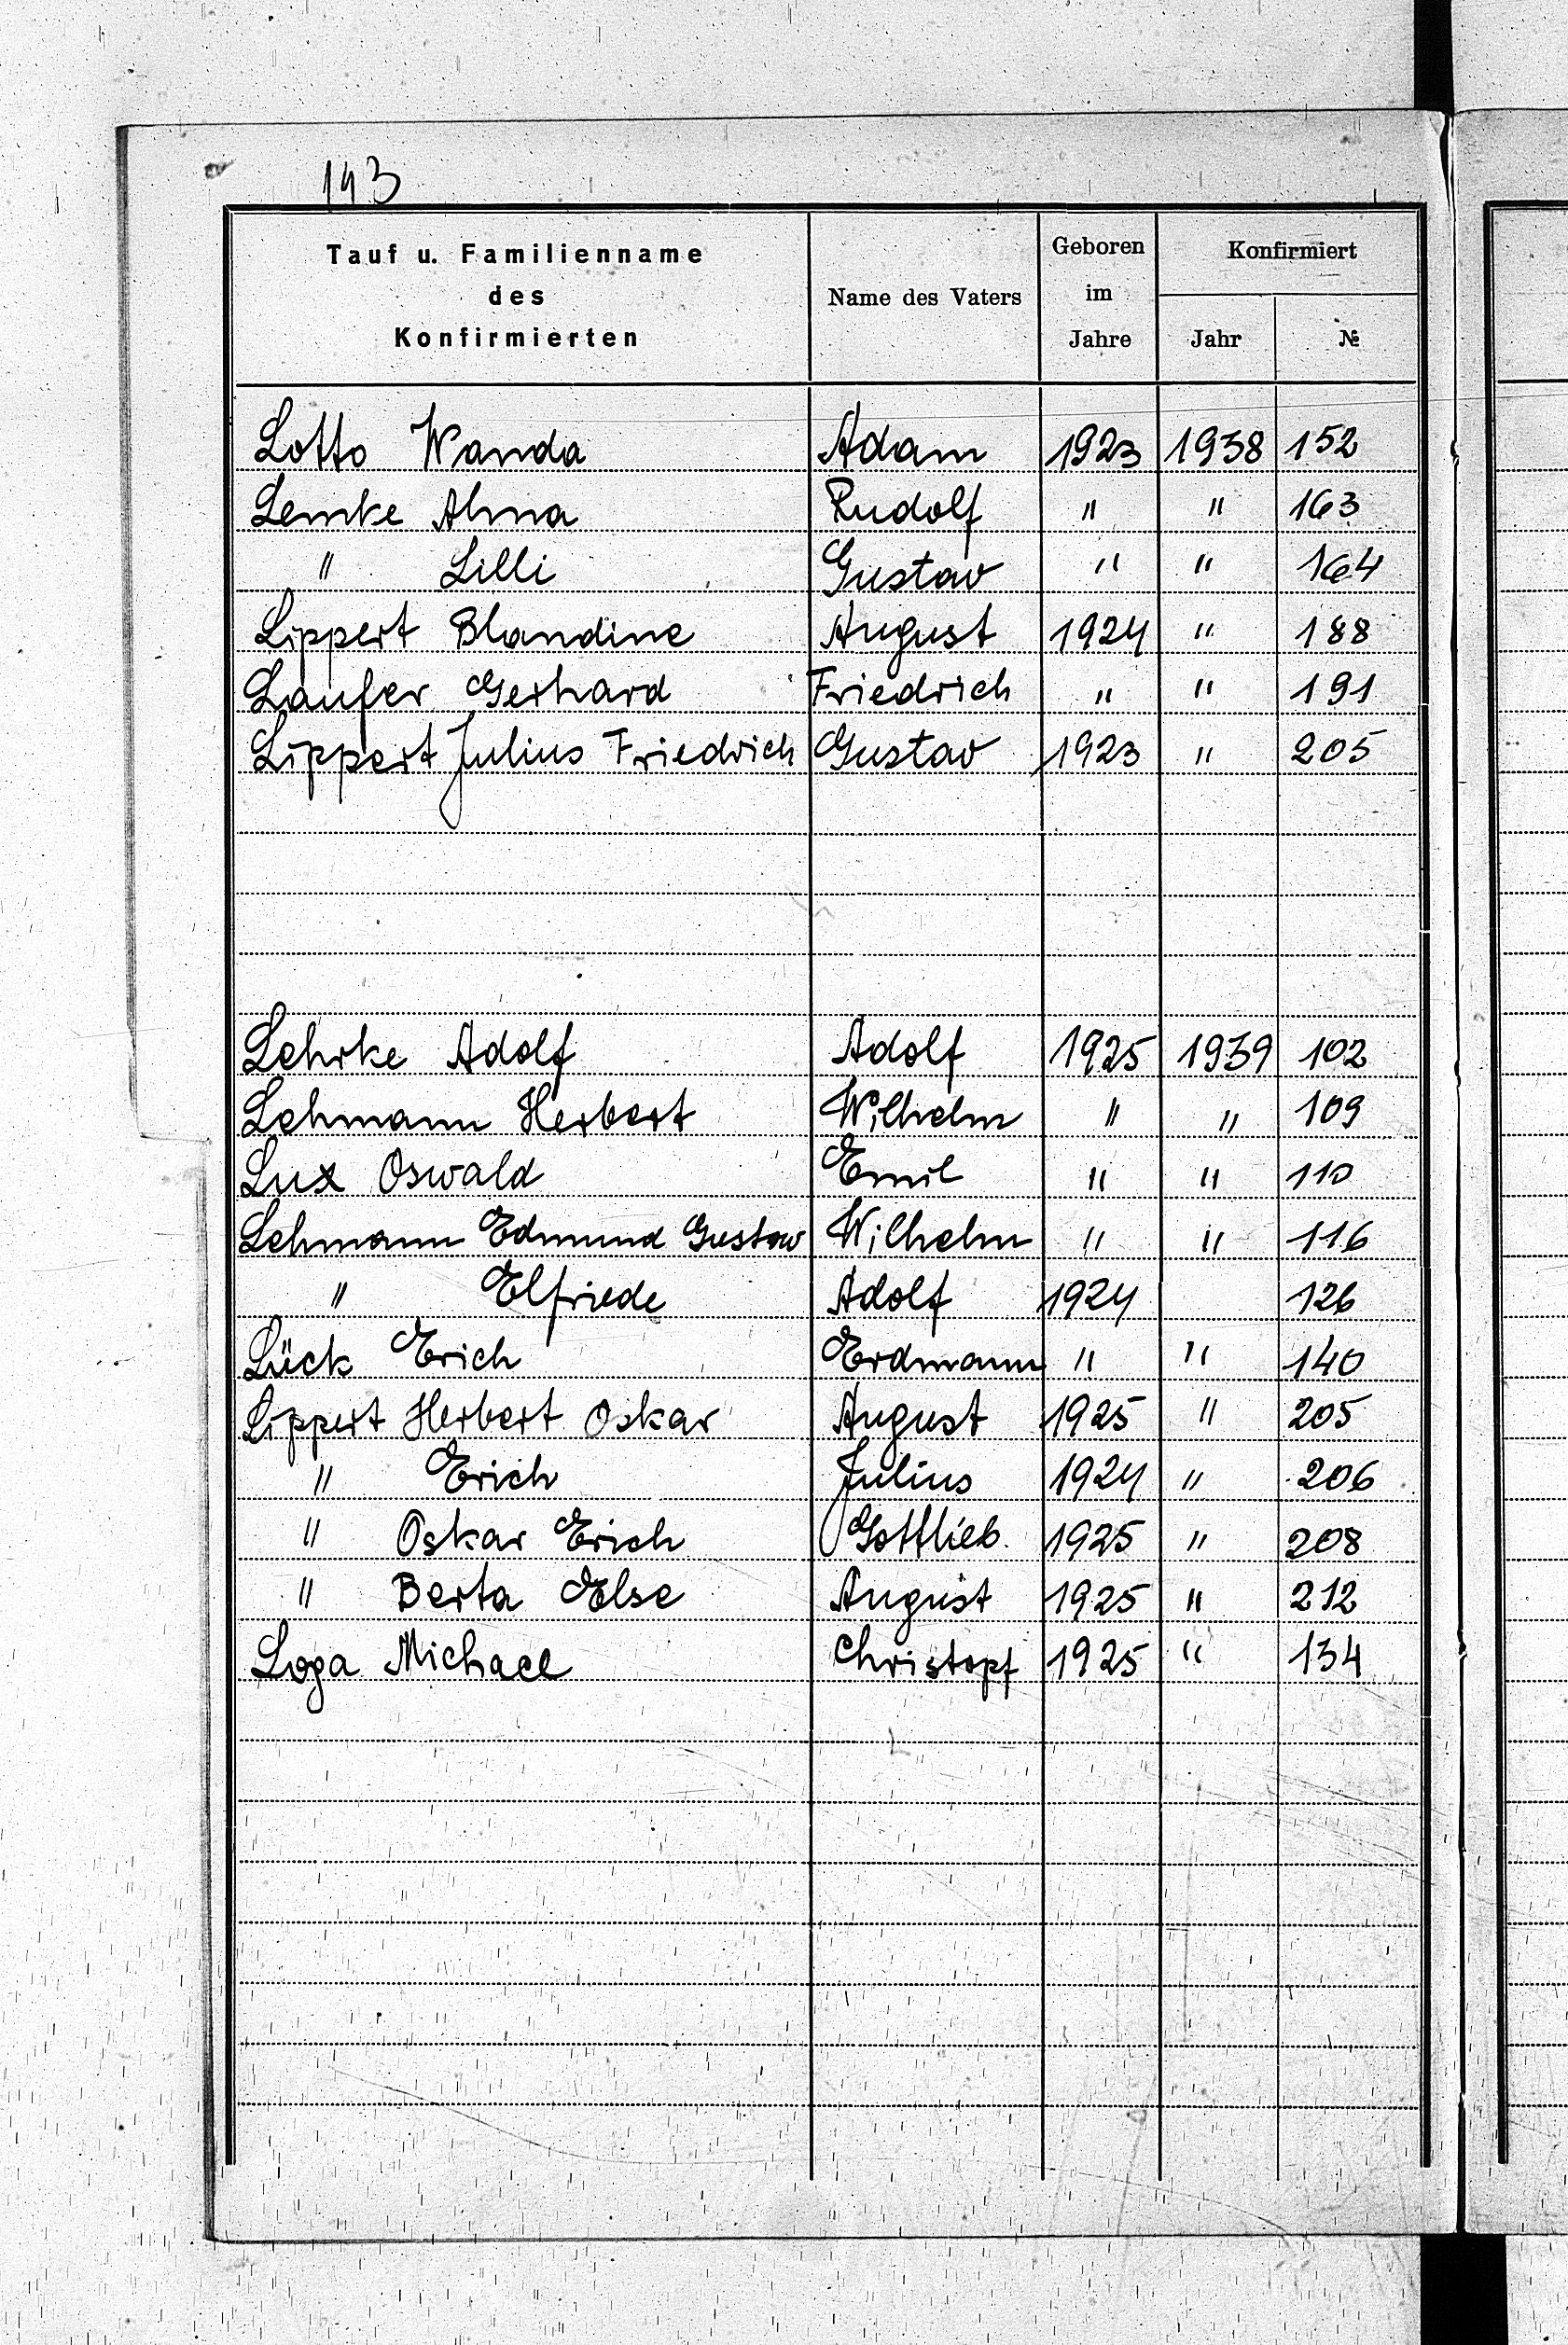 143
Tauf u. Familienname des Konfirmierten | Name des Vaters | Geboren im Jahre | Konfirmiert Jahr | №
Lotto Wanda Adam 1923 1938 152
Lemke Alma Rudolf " " 163
" Lilli Gustav " " 164
Lippert Blandine August 1924 " 188
Laufer Gerhard Friedrich " " 191
Lippert Julius Friedrich Gustav 1923 " 205
Lehrke Adolf Adolf 1925 1939 102
Lehmann Herbert Wilhelm " " 109
Lux Oswald Emil " " 110
Lehmann Edmund Gustaw Wilhelm " " 116
" Elfriede Adolf 1924 126
Lück Erich Erdmann " " 140
Lippert Herbert Oskar August 1925 " 205
" Erich Julius 1924 " 206
" Oskar Erich Gottlieb 1925 " 208
" Berta Else August 1925 " 212
Loga Michael Christopf 1925 " 134